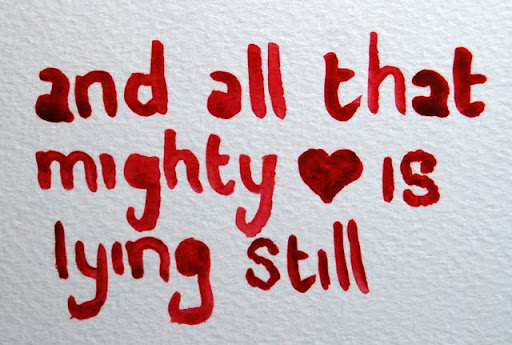 and all that
mighty ♥ is
lying still